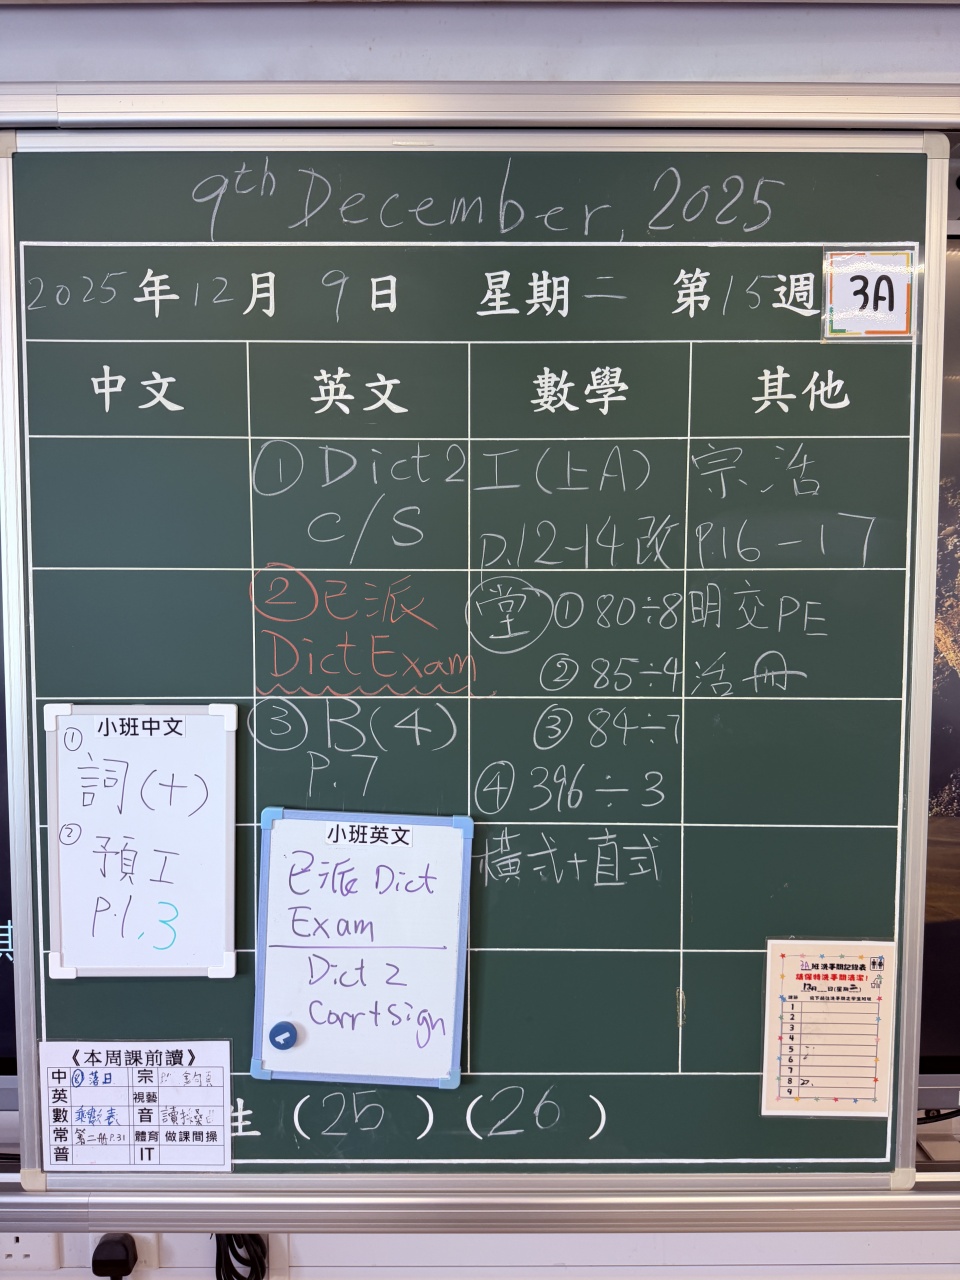 9th December, 2025
2025年12月9日 星期二 第15週
3A
中文 英文 數學 其他
① Dict 2
C/S
② 已派
Dict Exam
③ B(4)
P.7
工(上A)
P.12-14改
堂 ① 80÷8
② 85÷4
③ 84÷7
④ 396÷3
橫式+直式
宗 浩
P.16-17
明交PE
活冊
小班中文
① 詞(十)
② 預工
P.1,3
小班英文
已派 Dict
Exam
Dict 2
Corr+Sign
《本周課前讀》
中 ⑧落日 宗
英 視藝
數 乘數表 音
常 第二冊P.31 體育 做課間操
普 IT
生 (25)(26)
3A班洗手間記錄表
請保持洗手間清潔!
12月 日(星期二)
1
2
3
4
5
6
7
8
9